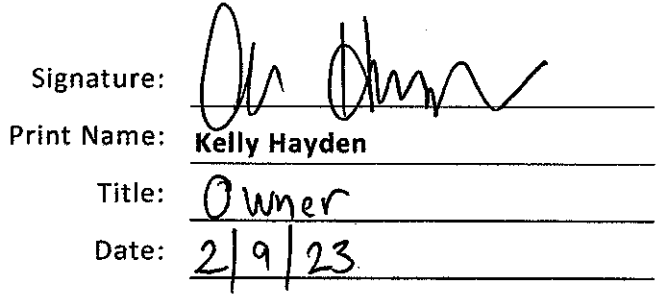 Signature:
Print Name: Kelly Hayden
Title: Owner
Date: 2/9/23